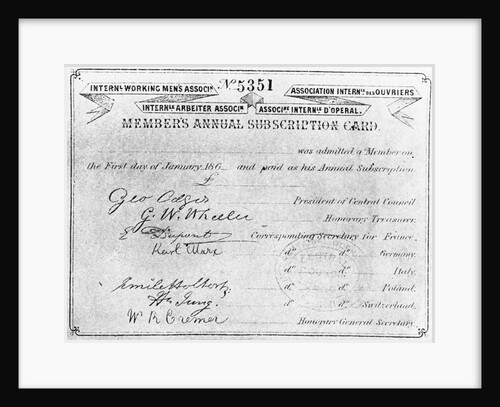 INTERNL WORKING MEN'S ASSOCIN
No 5351
ASSOCIATION INTERNLE DES OUVRIERS
INTERNLE ARBEITER ASSOCIN
ASSOCNE INTERNLE D'OPERAI.
MEMBER'S ANNUAL SUBSCRIPTION CARD.
was admitted a Member on
the First day of January 186 and paid as his Annual Subscription
£
Geo Odger President of Central Council
G. W. Wheeler Honorary Treasurer.
E Dupont Corresponding Secretary for France.
Karl Marx do do Germany.
do do Italy.
Emile Holtorp do do Poland.
Hn Jung. do do Switzerland.
W R Cremer Honorary General Secretary